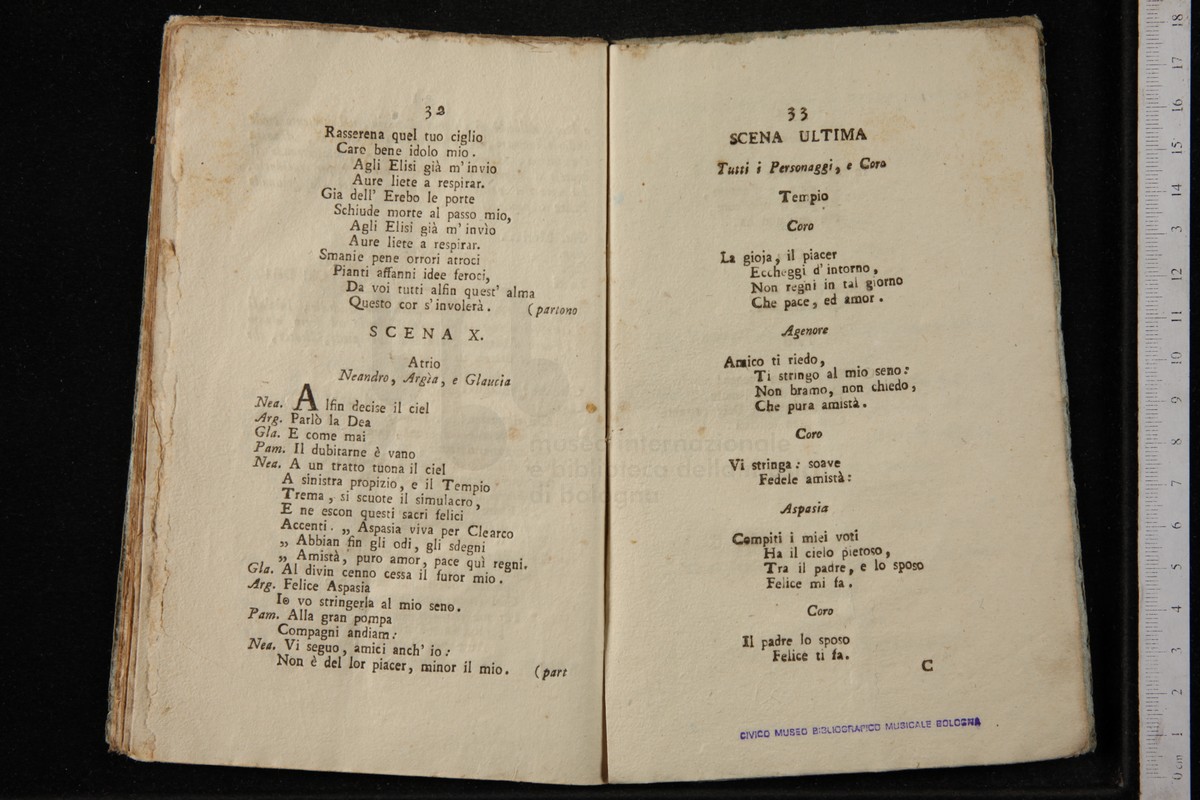 32
Rasserena quel tuo ciglio
Caro bene idolo mio.
Agli Elisi già m'invio
Aure liete a respirar.
Gia dell' Erebo le porte
Schiude morte al passo mio,
Agli Elisi già m'invìo
Aure liete a respirar.
Smanie pene orrori atroci
Pianti affanni idee feroci,
Da voi tutti alfin quest' alma
Questo cor s'involerà. (partono
SCENA X.
Atrio
Neandro, Argìa, e Glaucia
Nea. Alfin decise il ciel
Arg. Parlò la Dea
Gla. E come mai
Pam. Il dubitarne è vano
Nea. A un tratto tuona il ciel
A sinistra propizio, e il Tempio
Trema, si scuote il simulacro,
E ne escon questi sacri felici
Accenti. „ Aspasia viva per Clearco
„ Abbian fin gli odj, gli sdegni
„ Amistà, puro amor, pace quì regni.
Gla. Al divin cenno cessa il furor mio.
Arg. Felice Aspasia
Io vo stringerla al mio seno.
Pam. Alla gran pompa
Compagni andiam:
Nea. Vi seguo, amici anch' io:
Non è del lor piacer, minor il mio. (part
33
SCENA ULTIMA
Tutti i Personaggi, e Coro
Tempio
Coro
La gioja, il piacer
Eccheggi d'intorno,
Non regni in tal giorno
Che pace, ed amor.
Agenore
Amico ti riedo,
Ti stringo al mio seno:
Non bramo, non chiedo,
Che pura amistà.
Coro
Vi stringa: soave
Fedele amistà:
Aspasia
Compiti i miei voti
Ha il cielo pietoso,
Tra il padre, e lo sposo
Felice mi fa.
Coro
Il padre lo sposo
Felice ti fa.
C
CIVICO MUSEO BIBLIOGRAFICO MUSICALE BOLOGNA
museo internazionale
e biblioteca della
di bologna
0 cm 1 2 3 4 5 6 7 8 9 10 11 12 13 14 15 16 17 18